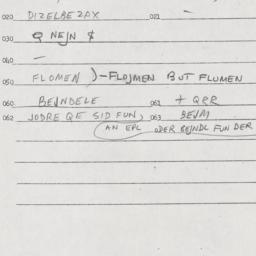 020 DIZELBEZAX 021 —
030 Q NEJN $
040 —
050 FLOMEN )—FLOJMEN BUT FLUMEN
060 BEJNDELE 061 + QRR
062 JODRE QE SID FUN, 063 BEJM
AN EPL ODER BEJNDL FUN DER